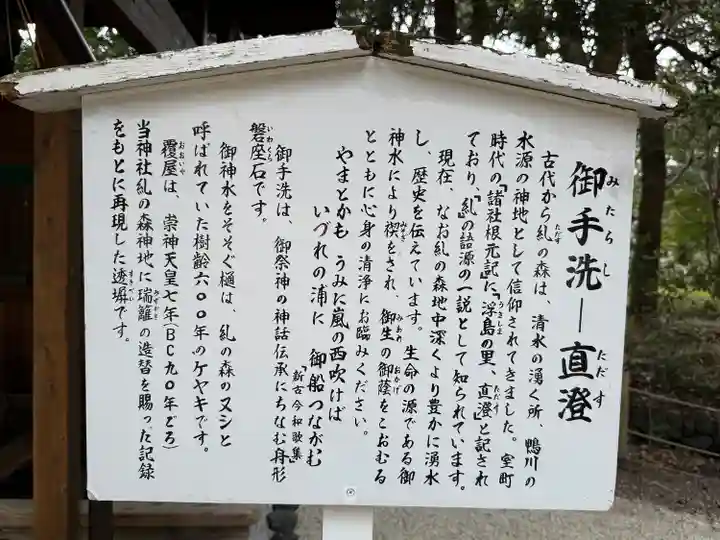 御手洗―直澄
みたらし ただす
古代から糺の森は、清水の湧く所、鴨川の
水源の神地として信仰されてきました。室町
時代の『諸社根元記』に『浮島の里、直澄』と記され
ており、『糺』の語源の一説として知られています。
現在、なお糺の森地中深くより豊かに湧水
し、歴史を伝えています。生命の源である御
神水により禊をされ、御生の御蔭をこおむる
とともに心身の清浄にお臨みください。
やまとかも うみに嵐の西吹けば
いづれの浦に 御船つながむ
「新古今和歌集」
御手洗は、御祭神の神話伝承にちなむ舟形
磐座石です。
御神水をそそぐ樋は、糺の森のヌシと
呼ばれていた樹齢六〇〇年のケヤキです。
覆屋は、崇神天皇七年(BC九〇年ごろ)
当神社糺の森神地に瑞籬の造替を賜った記録
をもとに再現した透塀です。